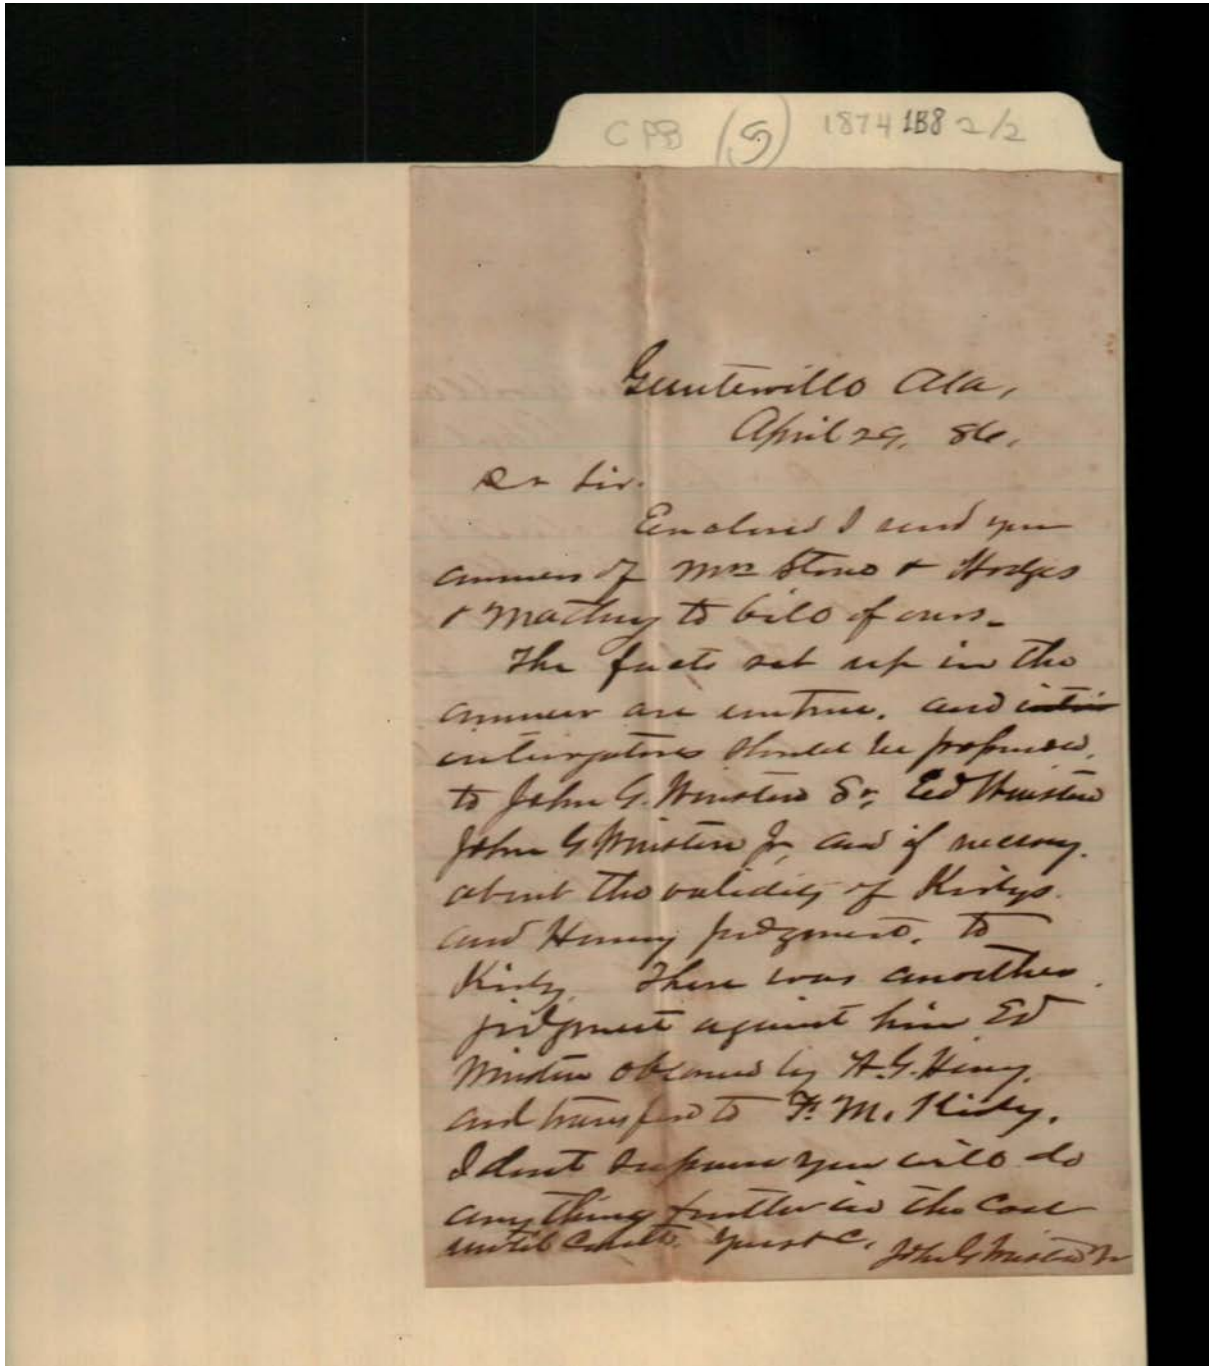 CPB (5) 1874 1B8 2/2
Guntersville Ala,
April 29, 86,
Dr Sir.
Enclosed I send you
answer of Mrs Stone & Hodges
& Mathey to bill of ours.
The facts set up in the
answer are untrue. and
interrogatories should be propounded,
to John G. Winston Sr, Ed Winston
John G Winston Jr, and if necessary.
about the validity of Kirbys.
and Henry judgment. to
Kirby. There was another
judgment against him Ed
Winston obtained by A. G. Henry,
and transfered to F. M. Kirby.
I dont suppose you will do
anything further in the case
until Court. yours &C, John G Winston Jr